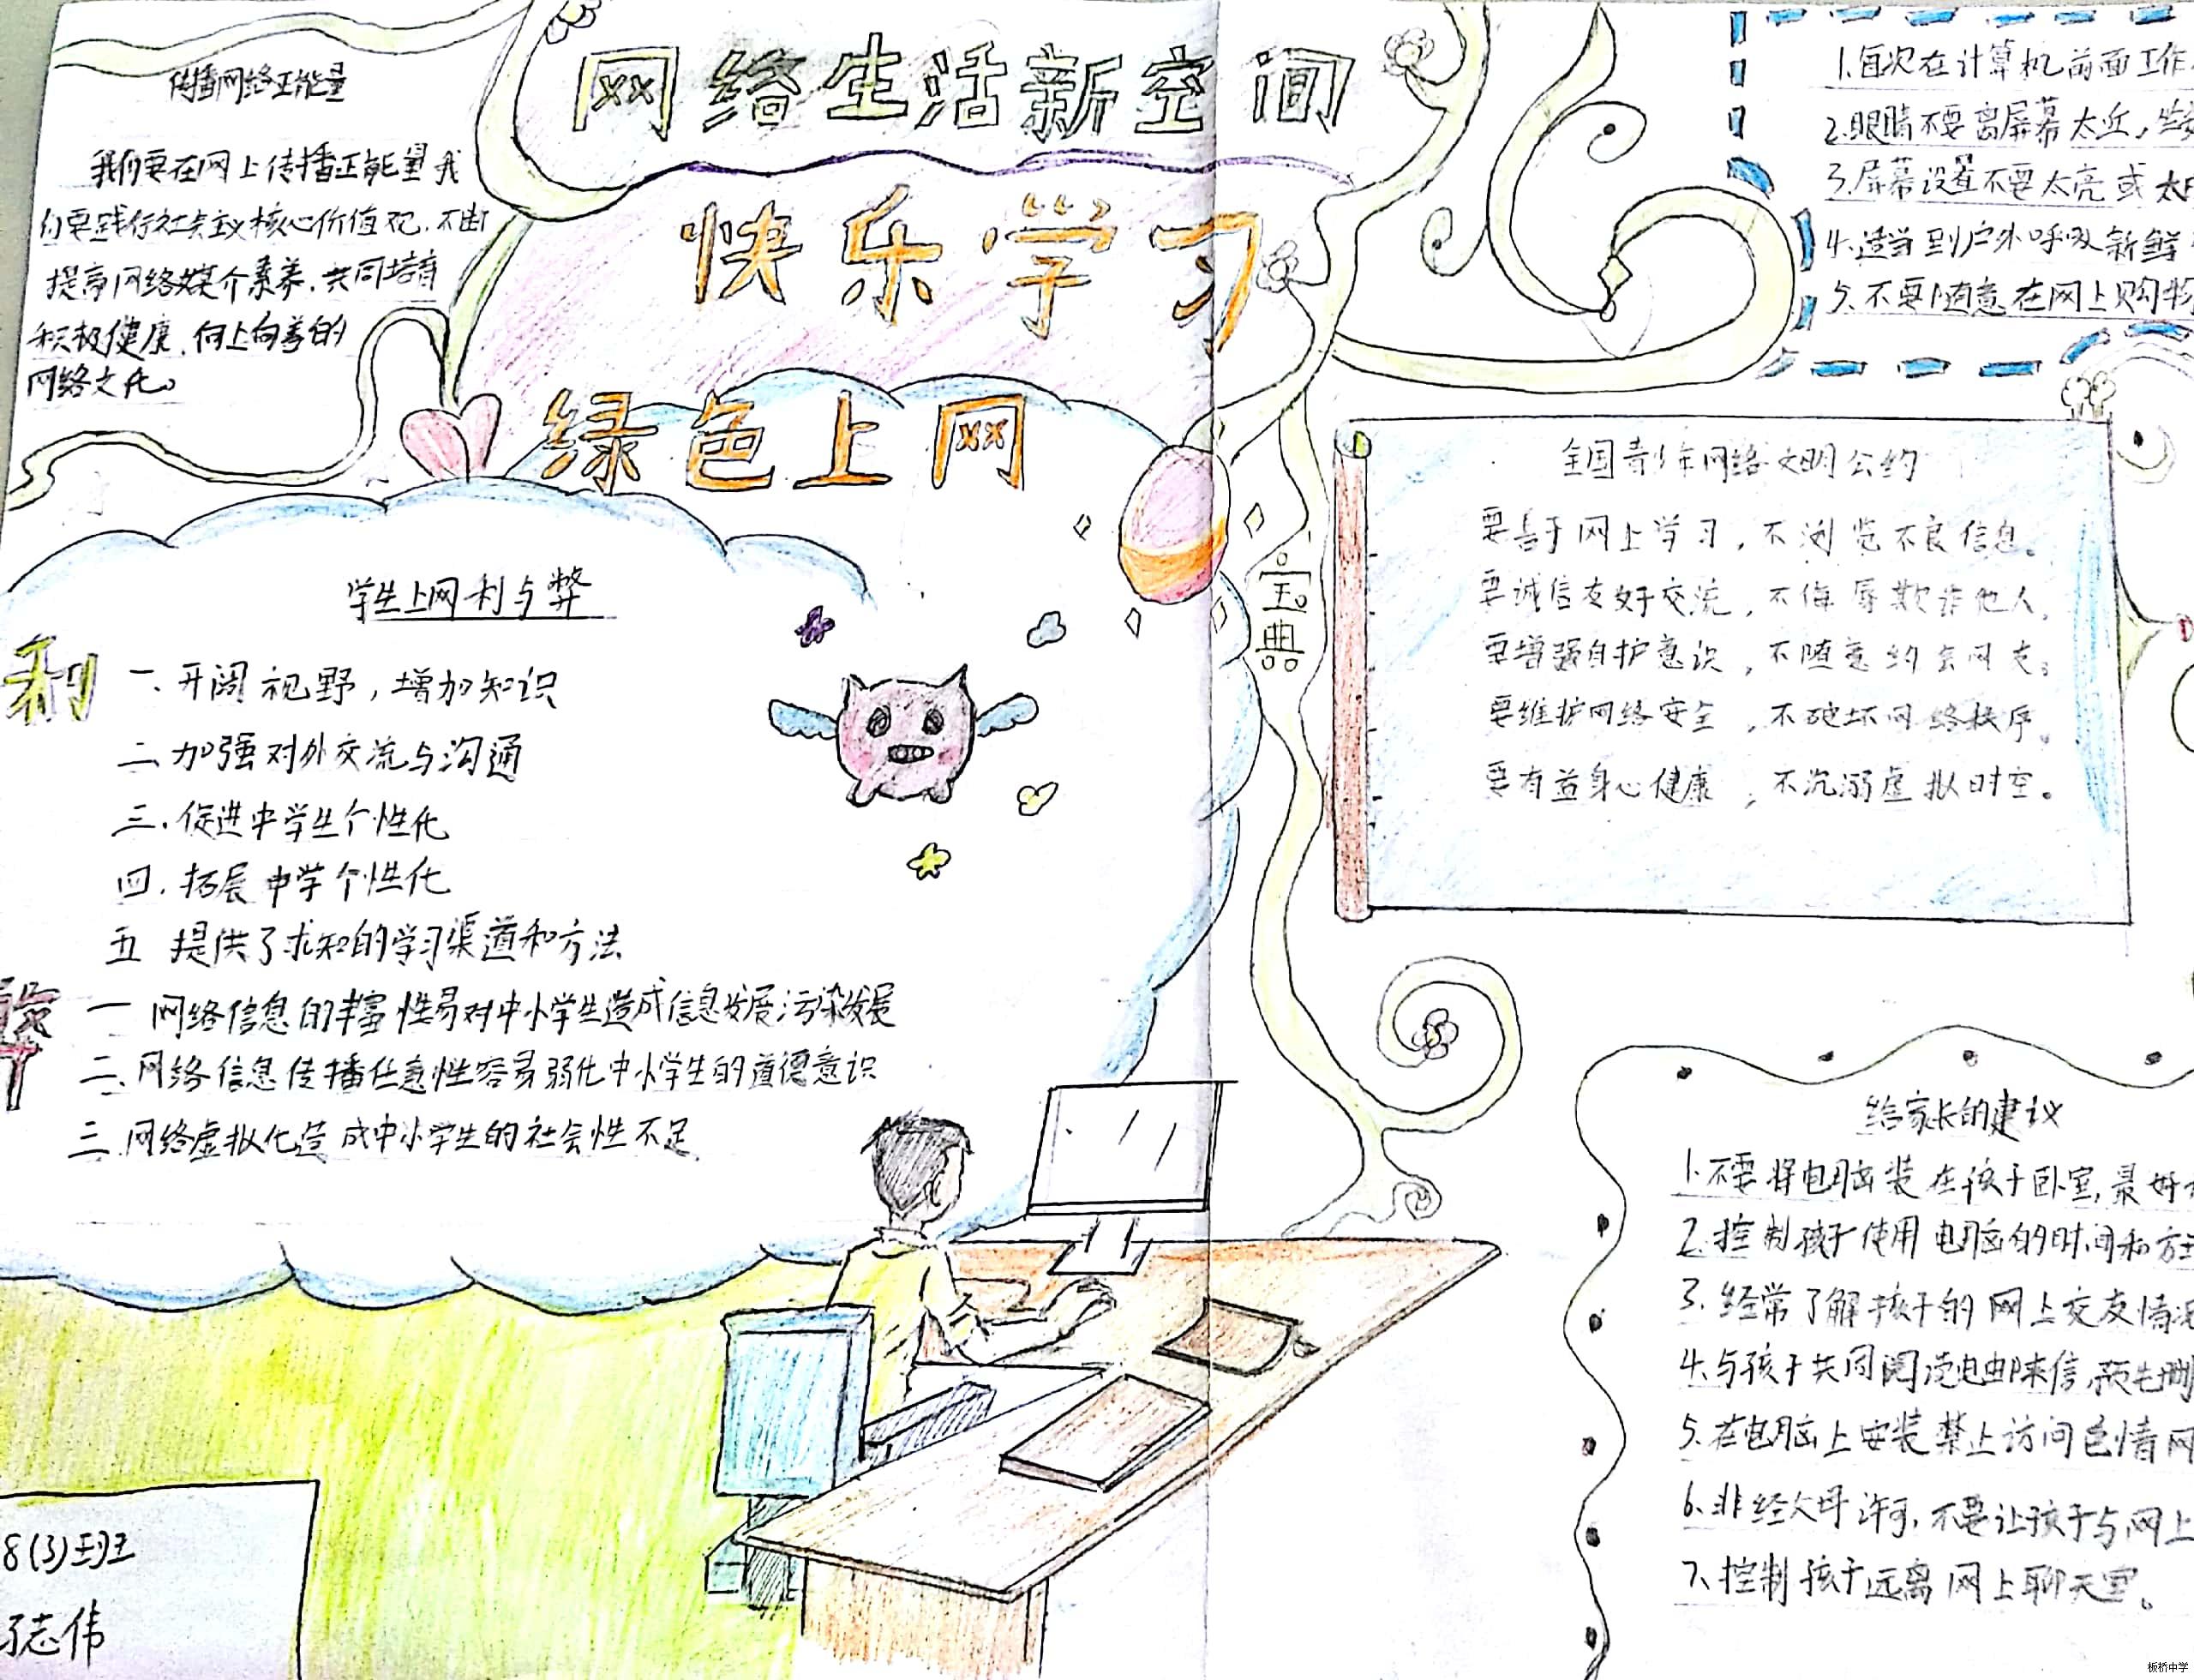 网络生活新空间
快乐学习
绿色上网
传播网络正能量
我们要在网上传播正能量我
们要践行社会主义核心价值观.不断
提高网络媒介素养.共同培育
积极健康.向上向善的
网络文化。
学生上网利与弊
利
一、开阔视野,增加知识
二、加强对外交流与沟通
三.促进中学生个性化
四.拓展中学个性化
五 提供了求知的学习渠道和方法
弊
一 网络信息的丰富性易对中小学生造成信息发展污染发展
二、网络信息传播任意性容易弱化中小学生的道德意识
三.网络虚拟化造成中小学生的社会性不足
8(3)班
志伟
宝典
1.每次在计算机前面工作
2.眼睛不要离屏幕太近,坐
3.屏幕设置不要太亮或太
4.适当到户外呼吸新鲜
5.不要随意在网上购物
全国青少年网络文明公约
要善于网上学习,不浏览不良信息。
要诚信友好交流,不侮辱欺诈他人。
要增强自护意识,不随意约会网友。
要维护网络安全,不破坏网络秩序。
要有益身心健康,不沉溺虚拟时空。
给家长的建议
1.不要将电脑装在孩子卧室,最好
2.控制孩子使用电脑的时间和方
3.经常了解孩子的网上交友情况
4.与孩子共同阅读电邮来信,预先删
5.在电脑上安装禁止访问色情网
6.非经父母许可,不要让孩子与网上
7.控制孩子远离网上聊天室。
板桥中学